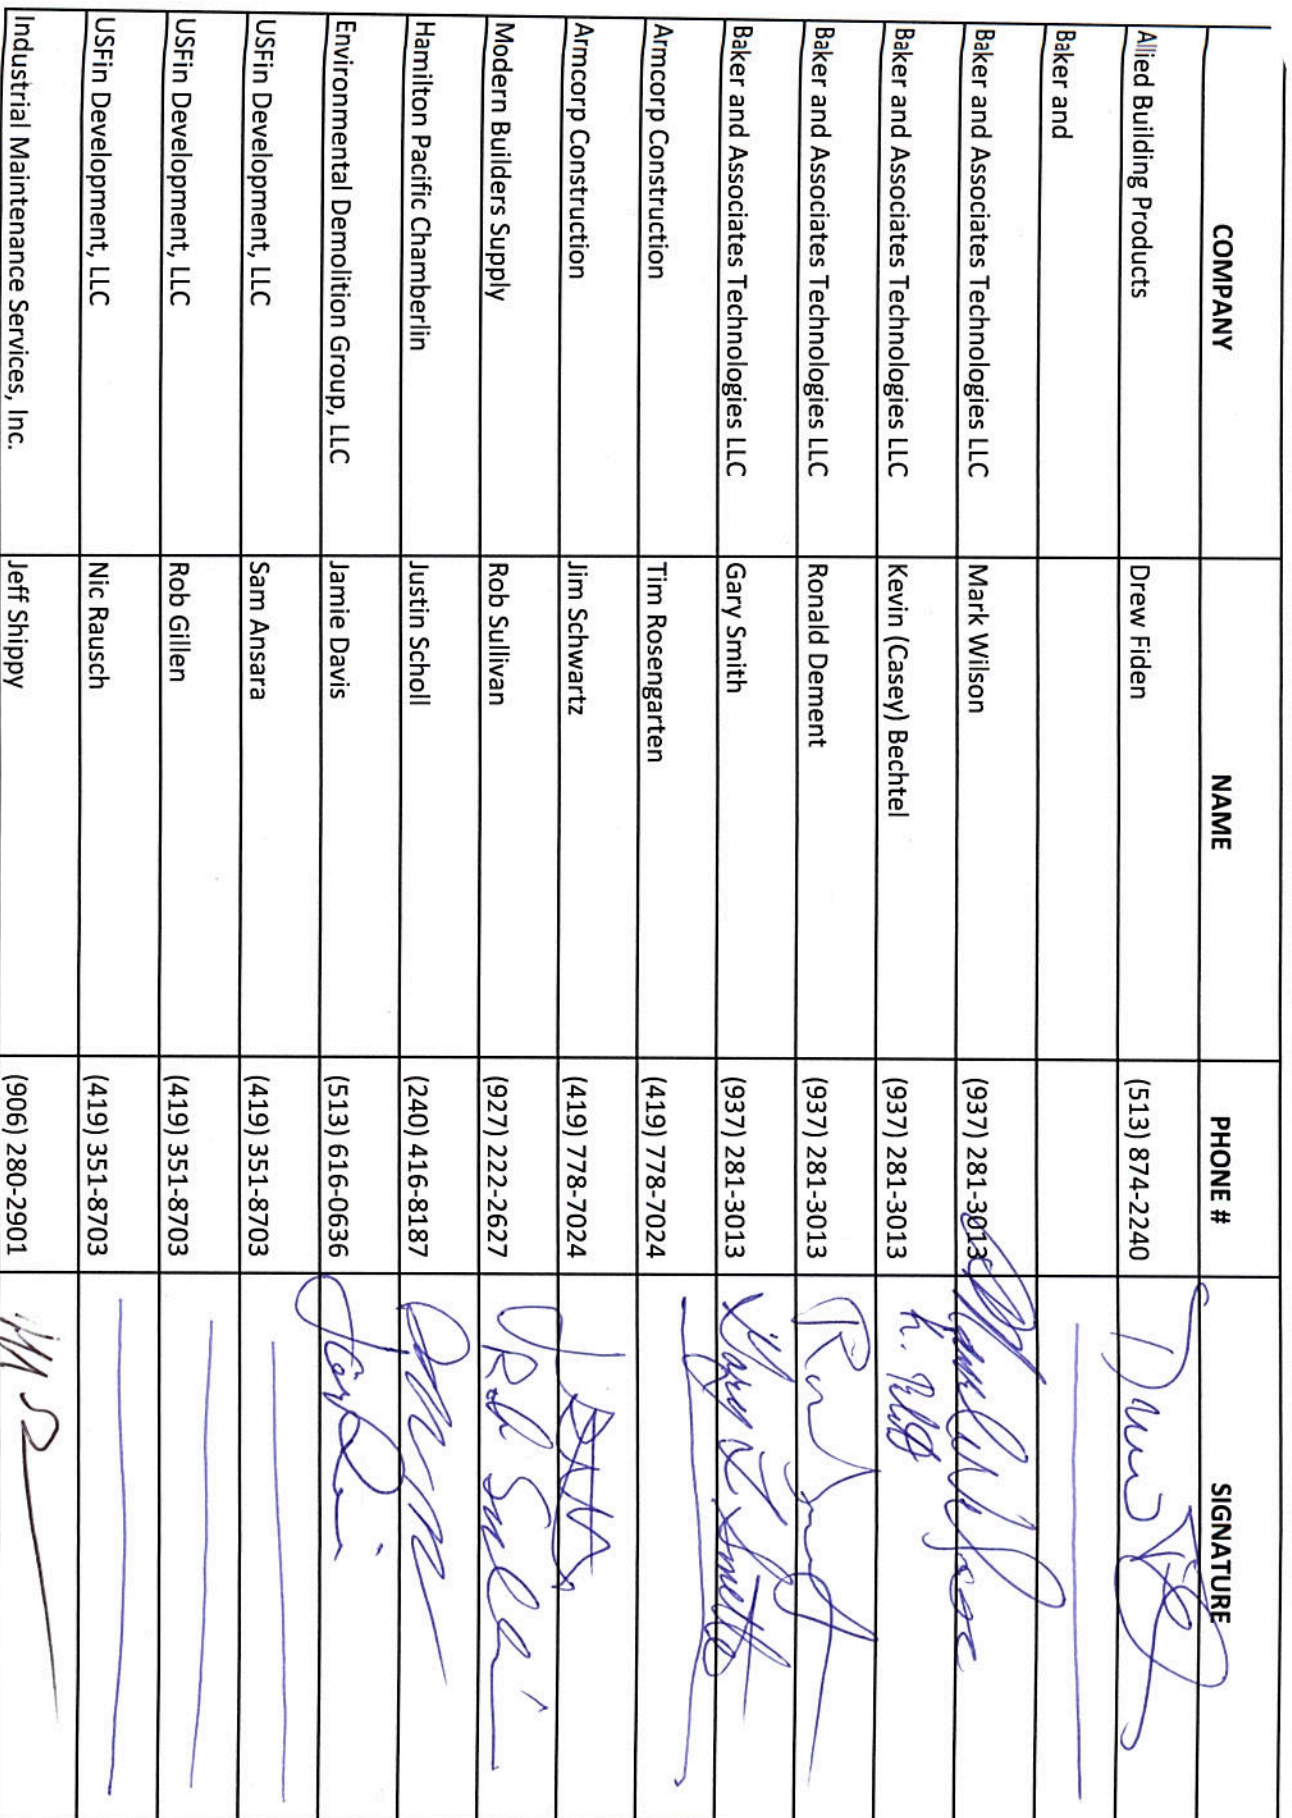 COMPANY NAME PHONE # SIGNATURE
Allied Building Products Drew Fiden (513) 874-2240
Baker and
Baker and Associates Technologies LLC Mark Wilson (937) 281-3013
Baker and Associates Technologies LLC Kevin (Casey) Bechtel (937) 281-3013 K.
Baker and Associates Technologies LLC Ronald Dement (937) 281-3013
Baker and Associates Technologies LLC Gary Smith (937) 281-3013 Gary
Armcorp Construction Tim Rosengarten (419) 778-7024
Armcorp Construction Jim Schwartz (419) 778-7024
Modern Builders Supply Rob Sullivan (927) 222-2627
Hamilton Pacific Chamberlin Justin Scholl (240) 416-8187
Environmental Demolition Group, LLC Jamie Davis (513) 616-0636
USFin Development, LLC Sam Ansara (419) 351-8703
USFin Development, LLC Rob Gillen (419) 351-8703
USFin Development, LLC Nic Rausch (419) 351-8703
Industrial Maintenance Services, Inc. Jeff Shippy (906) 280-2901